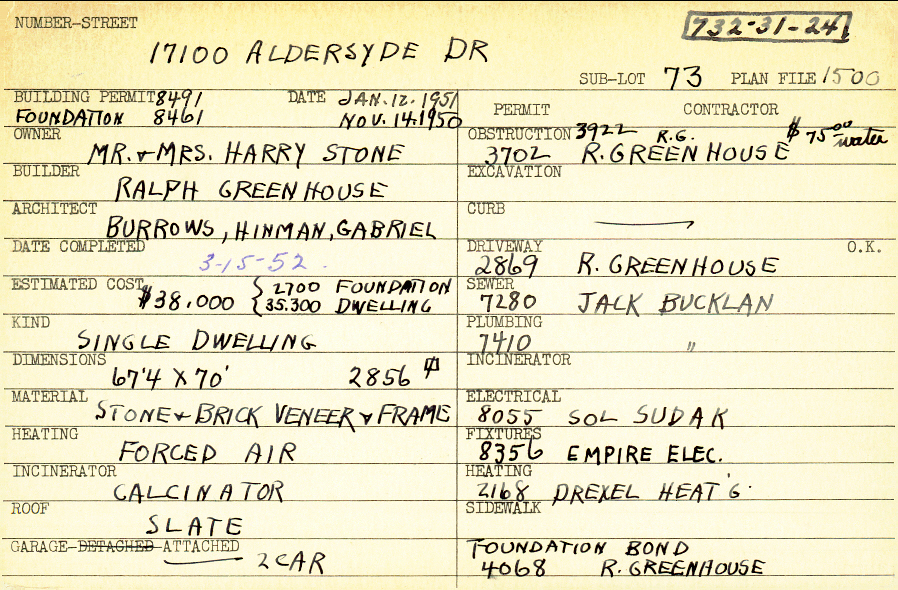 NUMBER-STREET
732-31-24
17100 ALDERSYDE DR
SUB-LOT 73 PLAN FILE 1500
BUILDING PERMIT 8491 DATE JAN. 12. 1951
FOUNDATION 8461 NOV. 14. 1950
OWNER
MR. & MRS. HARRY STONE
BUILDER
RALPH GREENHOUSE
ARCHITECT
BURROWS, HINMAN, GABRIEL
DATE COMPLETED
3-15-52.
ESTIMATED COST $38.000 { 2700 FOUNDATION
35.300 DWELLING
KIND
SINGLE DWELLING
DIMENSIONS
67'4 X 70' 2856
MATERIAL
STONE & BRICK VENEER & FRAME
HEATING
FORCED AIR
INCINERATOR
CALCINATOR
ROOF
SLATE
GARAGE-DETACHED-ATTACHED
2 CAR
PERMIT CONTRACTOR
OBSTRUCTION 3922 R.G. $75.00 water
3702 R. GREENHOUSE
EXCAVATION
CURB
DRIVEWAY O.K.
2869 R. GREENHOUSE
SEWER
7280 JACK BUCKLAN
PLUMBING
7410 "
INCINERATOR
ELECTRICAL
8055 SOL SUDAK
FIXTURES
8356 EMPIRE ELEC.
HEATING
2168 DREXEL HEAT'G.
SIDEWALK
FOUNDATION BOND
4068 R. GREENHOUSE